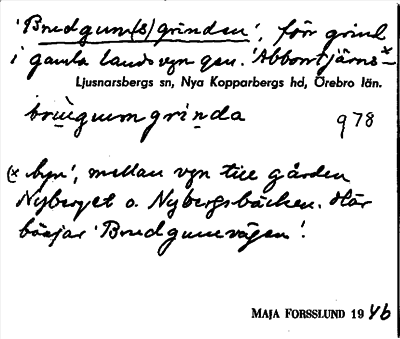 'Brudgum(s)grinden', förr grind
i gamla landsvgn gm. 'Abborrtjärns-x
Ljusnarsbergs sn, Nya Kopparbergs hd, Örebro län.
brùgumgrinda
978
(x byn', mellan vgn till gården
Nyberget o. Nybergsbäcken. Här
börjar 'Brudgumvägen'.
MAJA FORSSLUND 1946